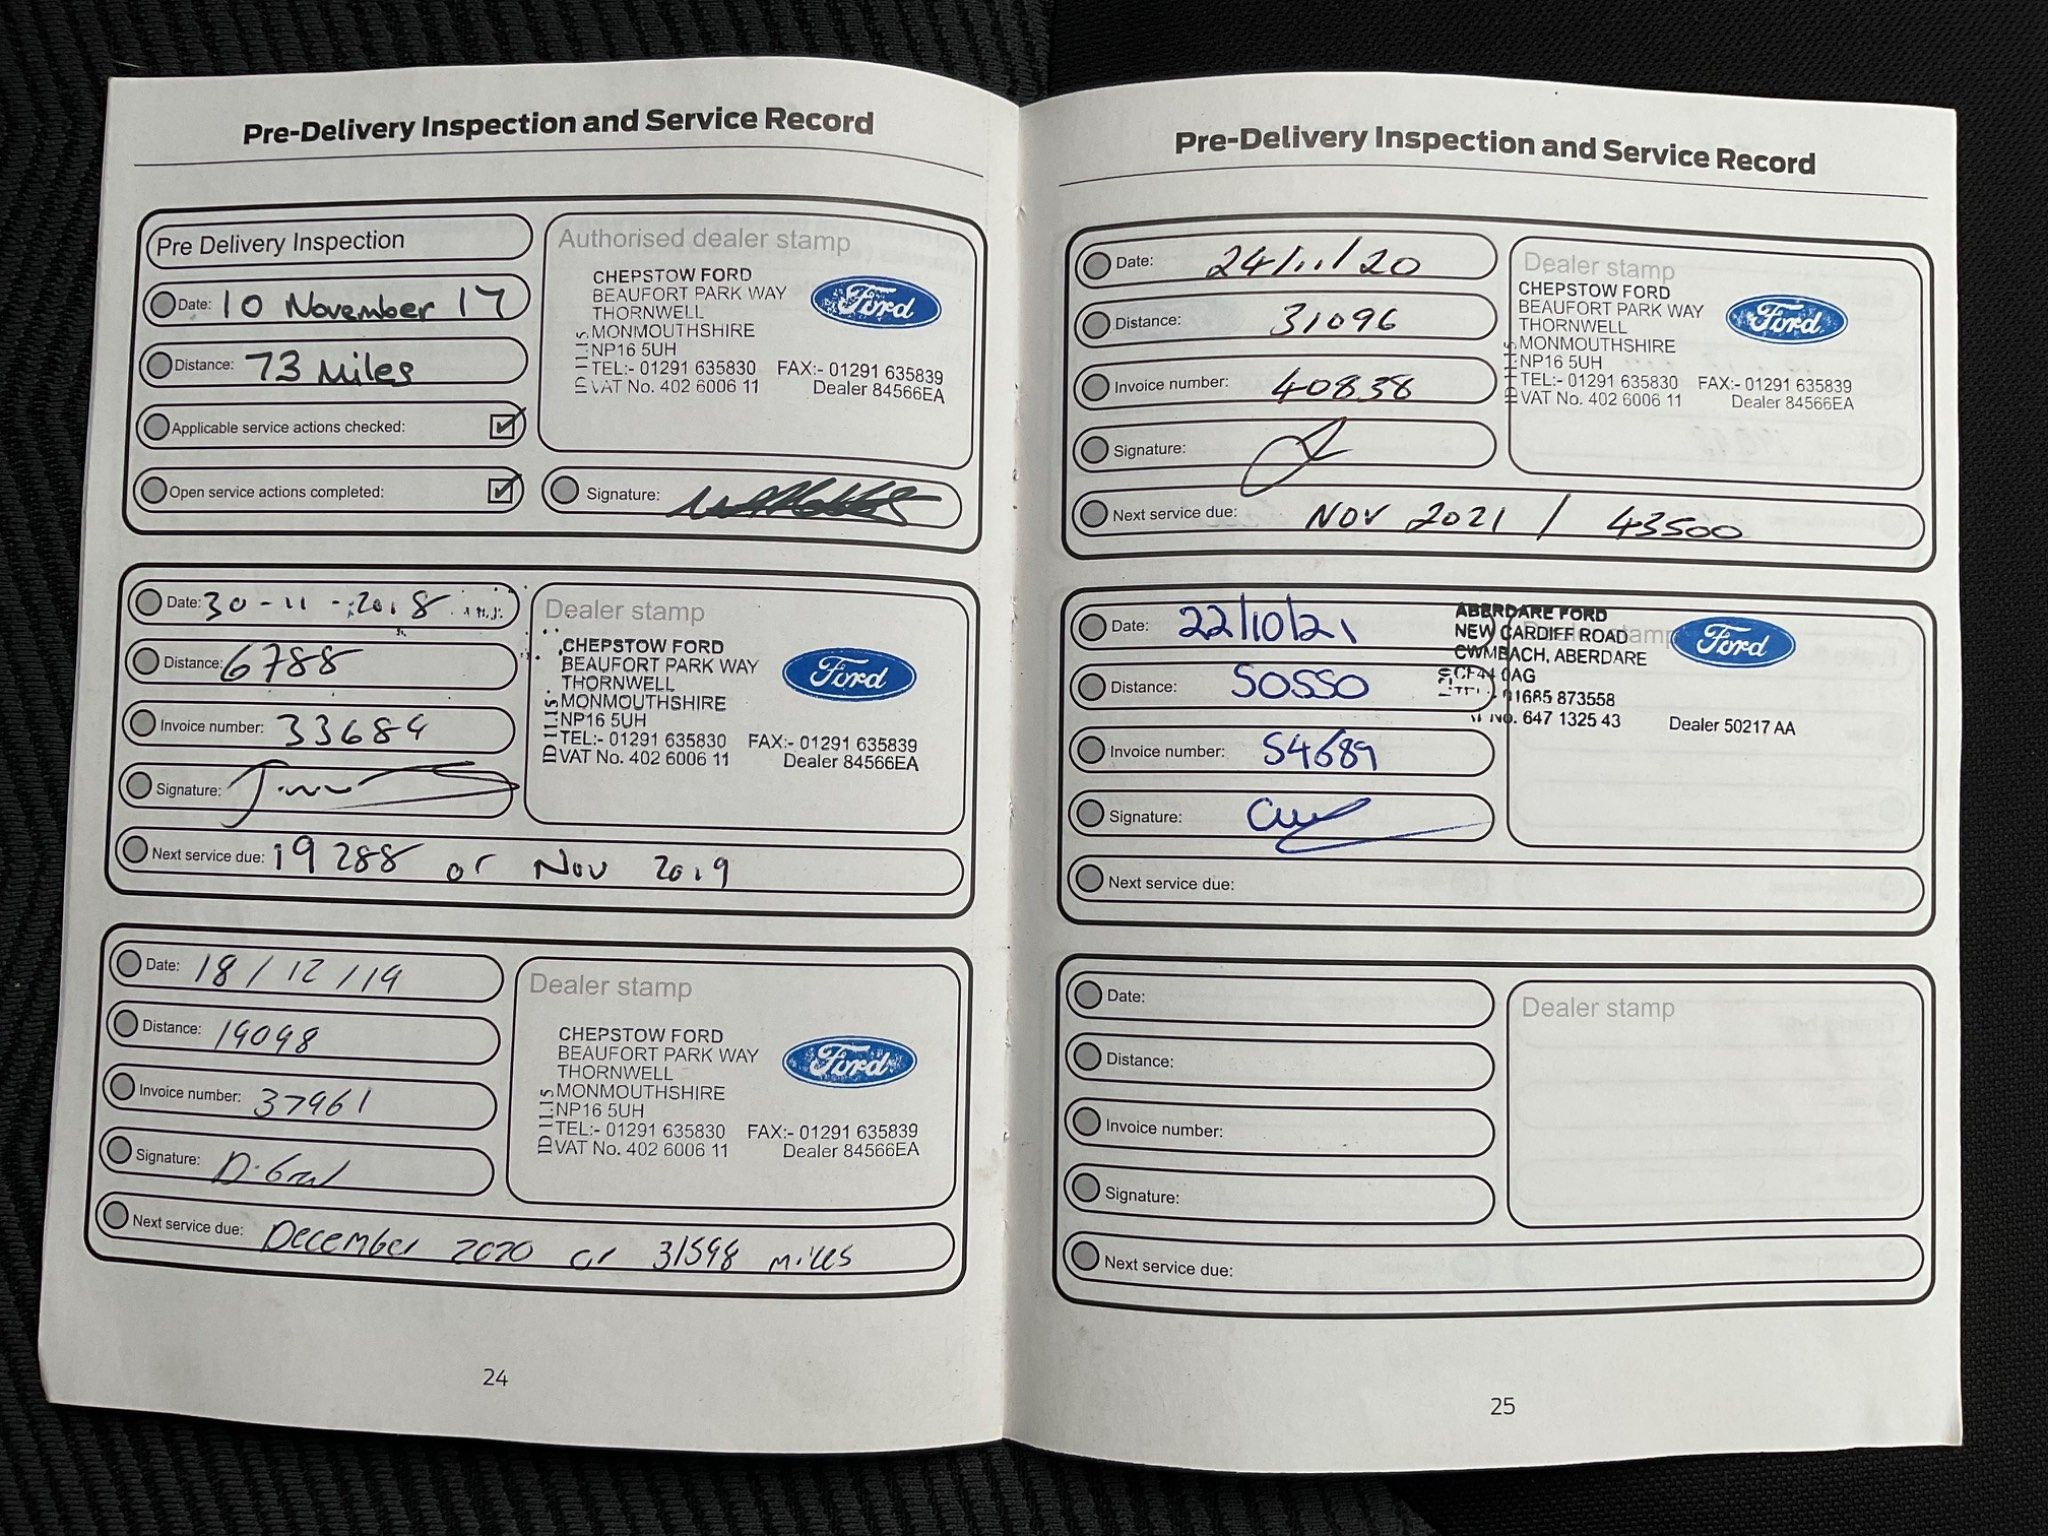 Pre-Delivery Inspection and Service Record
Pre Delivery Inspection
Date: 10 November 17
Distance: 73 Miles
Applicable service actions checked:
Open service actions completed:
Authorised dealer stamp
CHEPSTOW FORD
BEAUFORT PARK WAY
THORNWELL
MONMOUTHSHIRE
NP16 5UH
TEL:- 01291 635830 FAX:- 01291 635839
VAT No. 402 6006 11 Dealer 84566EA
Ford
Signature:
Date: 30-11-2018
Distance: 6788
Invoice number: 33684
Signature:
Next service due: 19288 or Nov 2019
Dealer stamp
CHEPSTOW FORD
BEAUFORT PARK WAY
THORNWELL
MONMOUTHSHIRE
NP16 5UH
TEL:- 01291 635830 FAX:- 01291 635839
VAT No. 402 6006 11 Dealer 84566EA
Ford
Date: 18/12/19
Distance: 19098
Invoice number: 37961
Signature:
Next service due: December 2020 or 31598 miles
Dealer stamp
CHEPSTOW FORD
BEAUFORT PARK WAY
THORNWELL
MONMOUTHSHIRE
NP16 5UH
TEL:- 01291 635830 FAX:- 01291 635839
VAT No. 402 6006 11 Dealer 84566EA
Ford
24
Pre-Delivery Inspection and Service Record
Date: 24/11/20
Distance: 31096
Invoice number: 40838
Signature:
Next service due: NOV 2021 / 43500
Dealer stamp
CHEPSTOW FORD
BEAUFORT PARK WAY
THORNWELL
MONMOUTHSHIRE
NP16 5UH
TEL:- 01291 635830 FAX:- 01291 635839
VAT No. 402 6006 11 Dealer 84566EA
Ford
Date: 22/10/21
Distance: 50550
Invoice number: 54689
Signature:
Next service due:
Dealer stamp
ABERDARE FORD
NEW CARDIFF ROAD
CWMBACH, ABERDARE
CF44 0AG
01685 873558
No. 647 1325 43 Dealer 50217 AA
Ford
Date:
Distance:
Invoice number:
Signature:
Next service due:
Dealer stamp
25